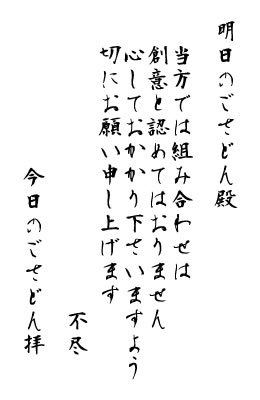 明日のごさどん殿
当方では組み合わせは
創意と認めてはおりません
心しておかかり下さいますよう
切にお願い申し上げます
不尽
今日のごさどん拝